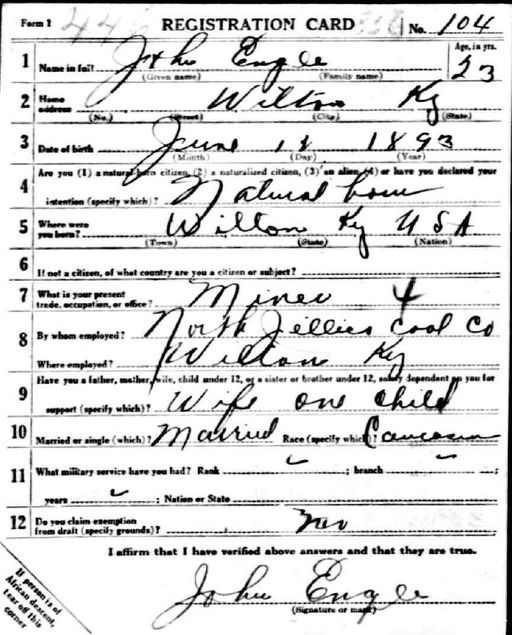 Form 1 REGISTRATION CARD No. 104
Age, in yrs.
1 Name in full John Engle 23
(Given name) (Family name)
2 Home address Wilton Ky
(No.) (Street) (City) (State)
3 Date of birth June 18 1893
(Month) (Day) (Year)
4 Are you (1) a natural-born citizen, (2) a naturalized citizen, (3) an alien, (4) or have you declared your
intention (specify which)? Natural born
5 Where were you born? Wilton Ky USA
(Town) (State) (Nation)
6 If not a citizen, of what country are you a citizen or subject?
7 What is your present trade, occupation, or office? Miner 4
8 By whom employed? North Jellico Coal Co
Where employed? Wilton Ky
9 Have you a father, mother, wife, child under 12, or a sister or brother under 12, solely dependent on you for
support (specify which)? Wife one child
10 Married or single (which)? Married Race (specify which)? Caucasian
11 What military service have you had? Rank ; branch ;
years ; Nation or State
12 Do you claim exemption from draft (specify grounds)?
I affirm that I have verified above answers and that they are true.
John Engle
(Signature or mark)
If person is of
African descent,
tear off this
corner